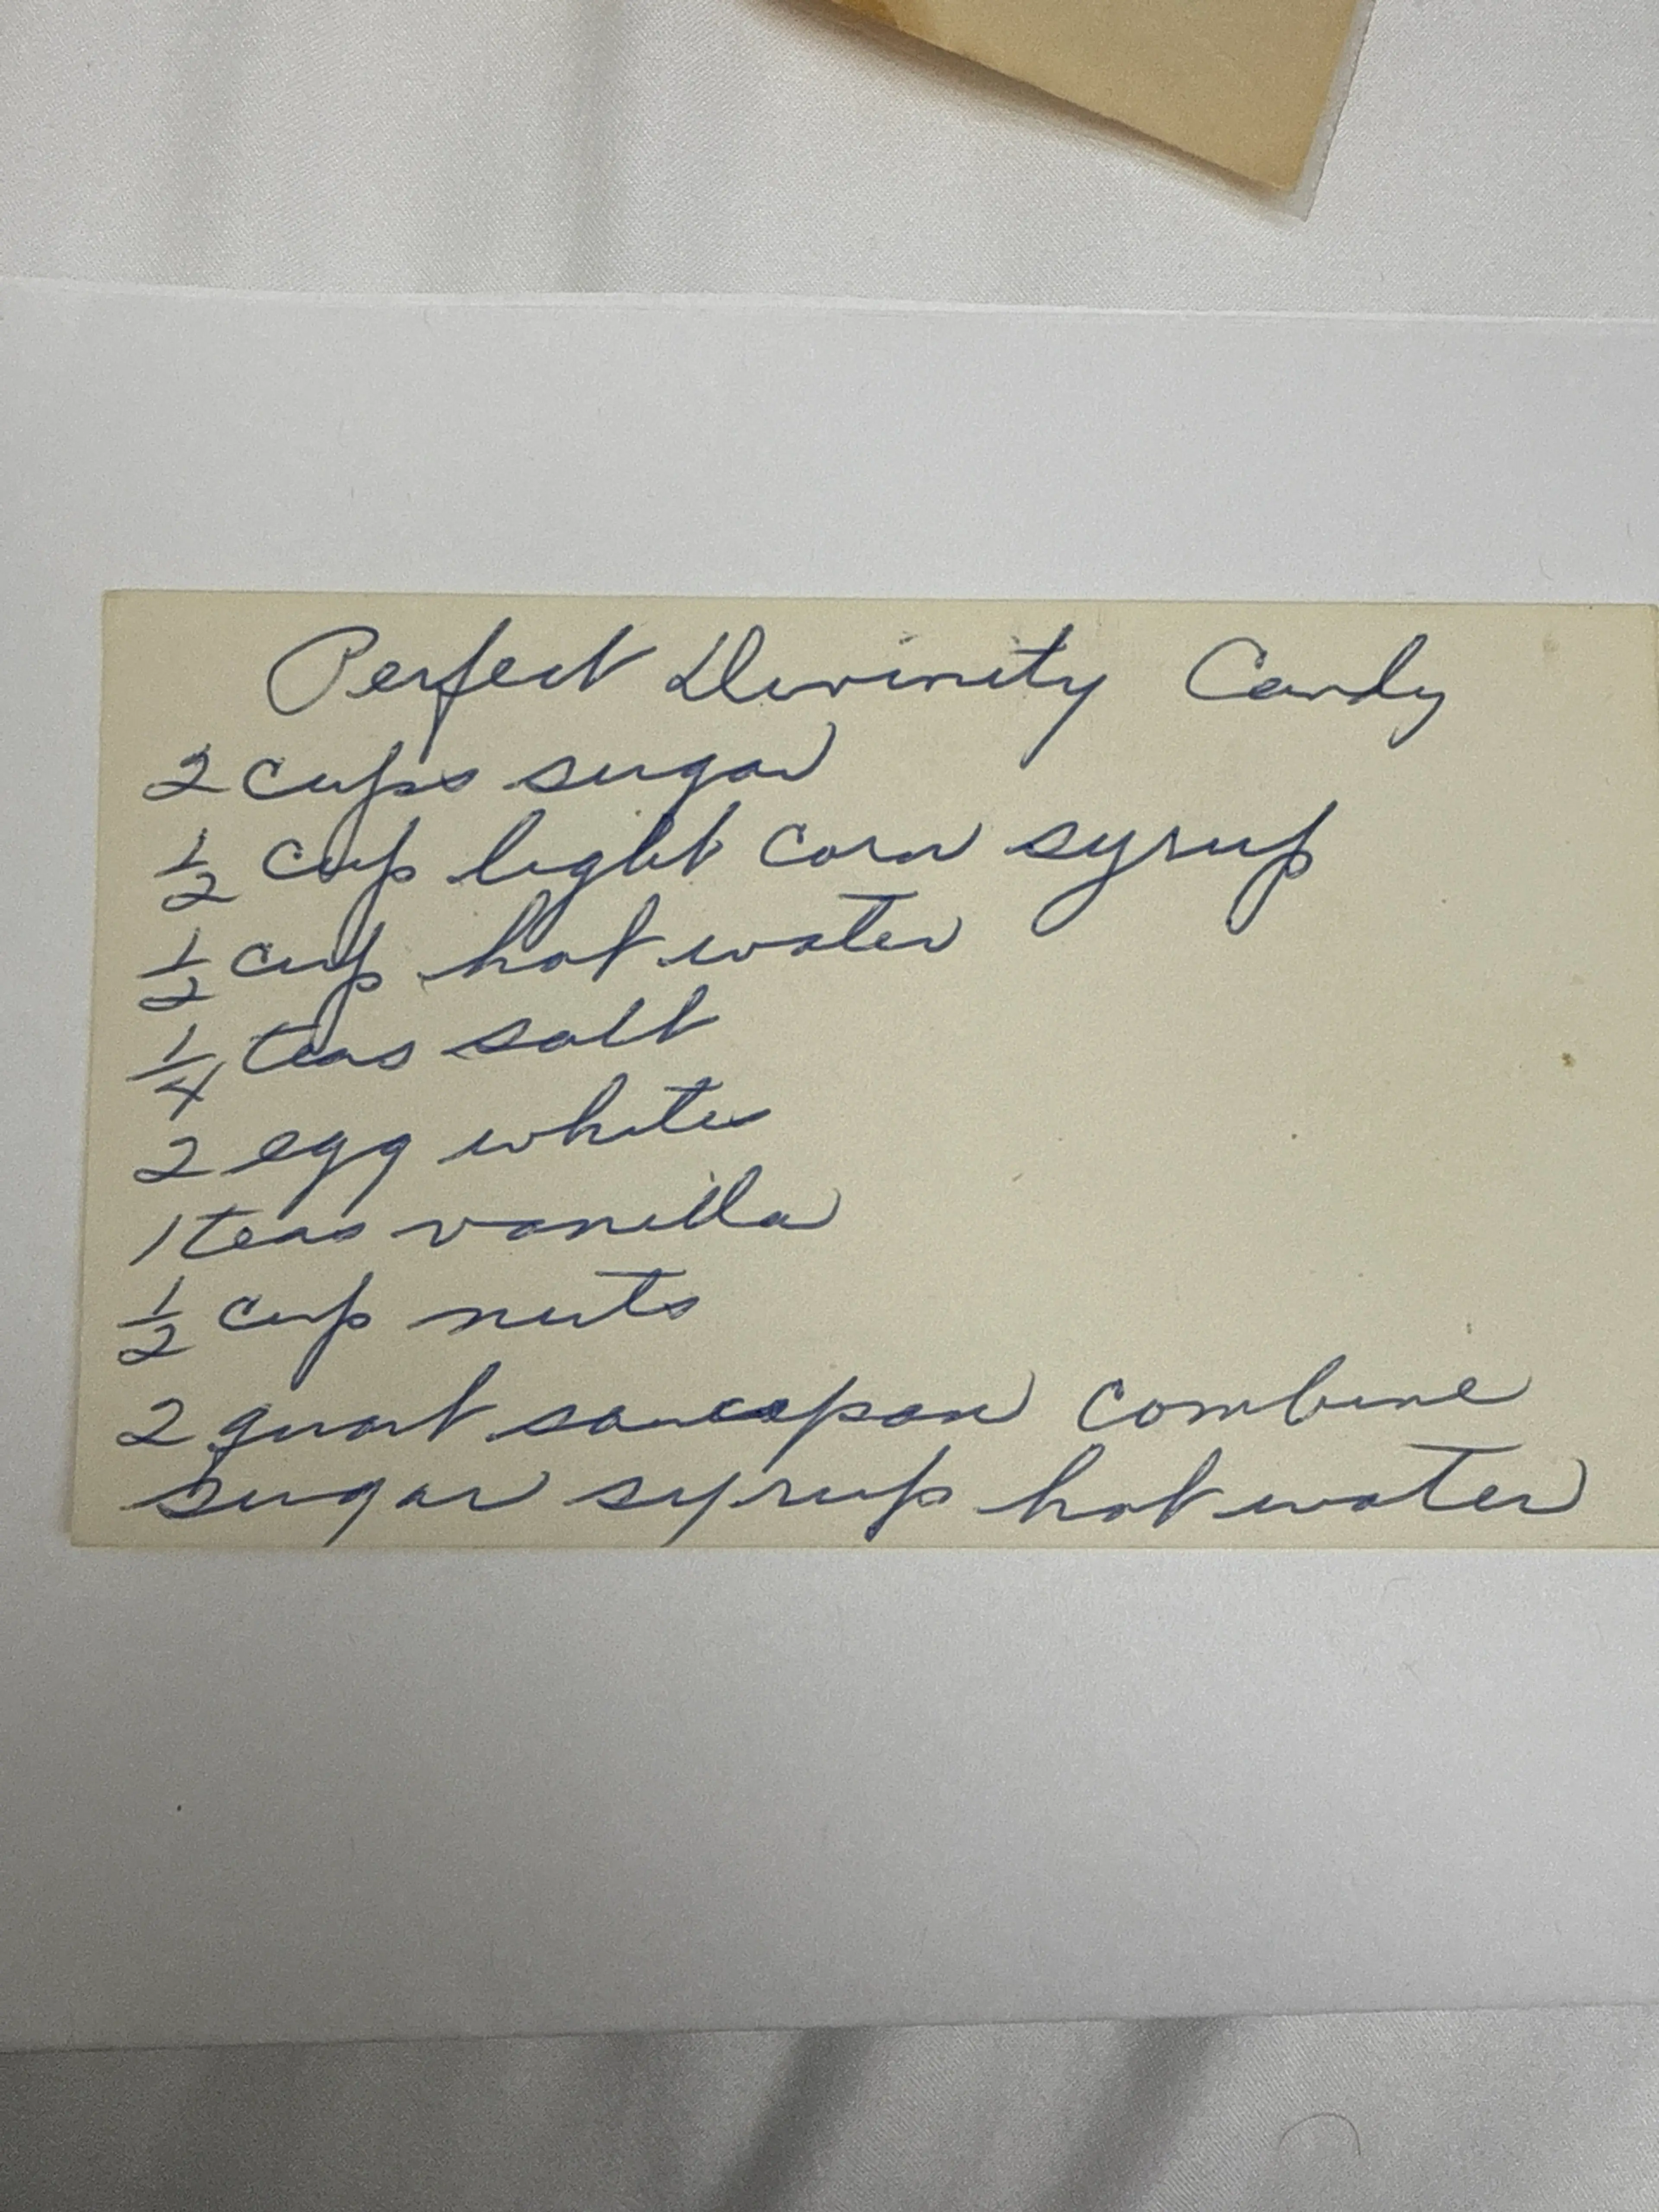 Perfect Divinity Candy
2 cups sugar
1/2 cup light corn syrup
1/2 cup hot water
1/4 teas salt
2 egg whites
1 teas vanilla
1/2 cup nuts
2 quart saucepan combine
sugar syrup hot water